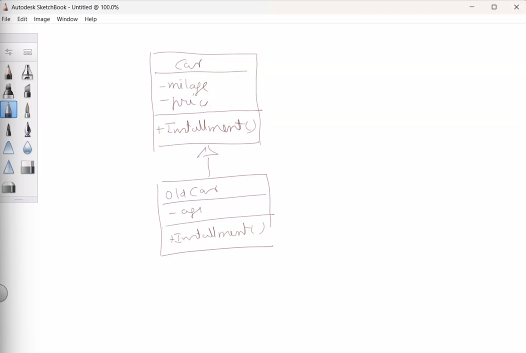 Autodesk SketchBook - Untitled @ 100.0%
File Edit Image Window Help
Car
- milage
- price
+ Installment()
Old Car
- age
+ Installment()